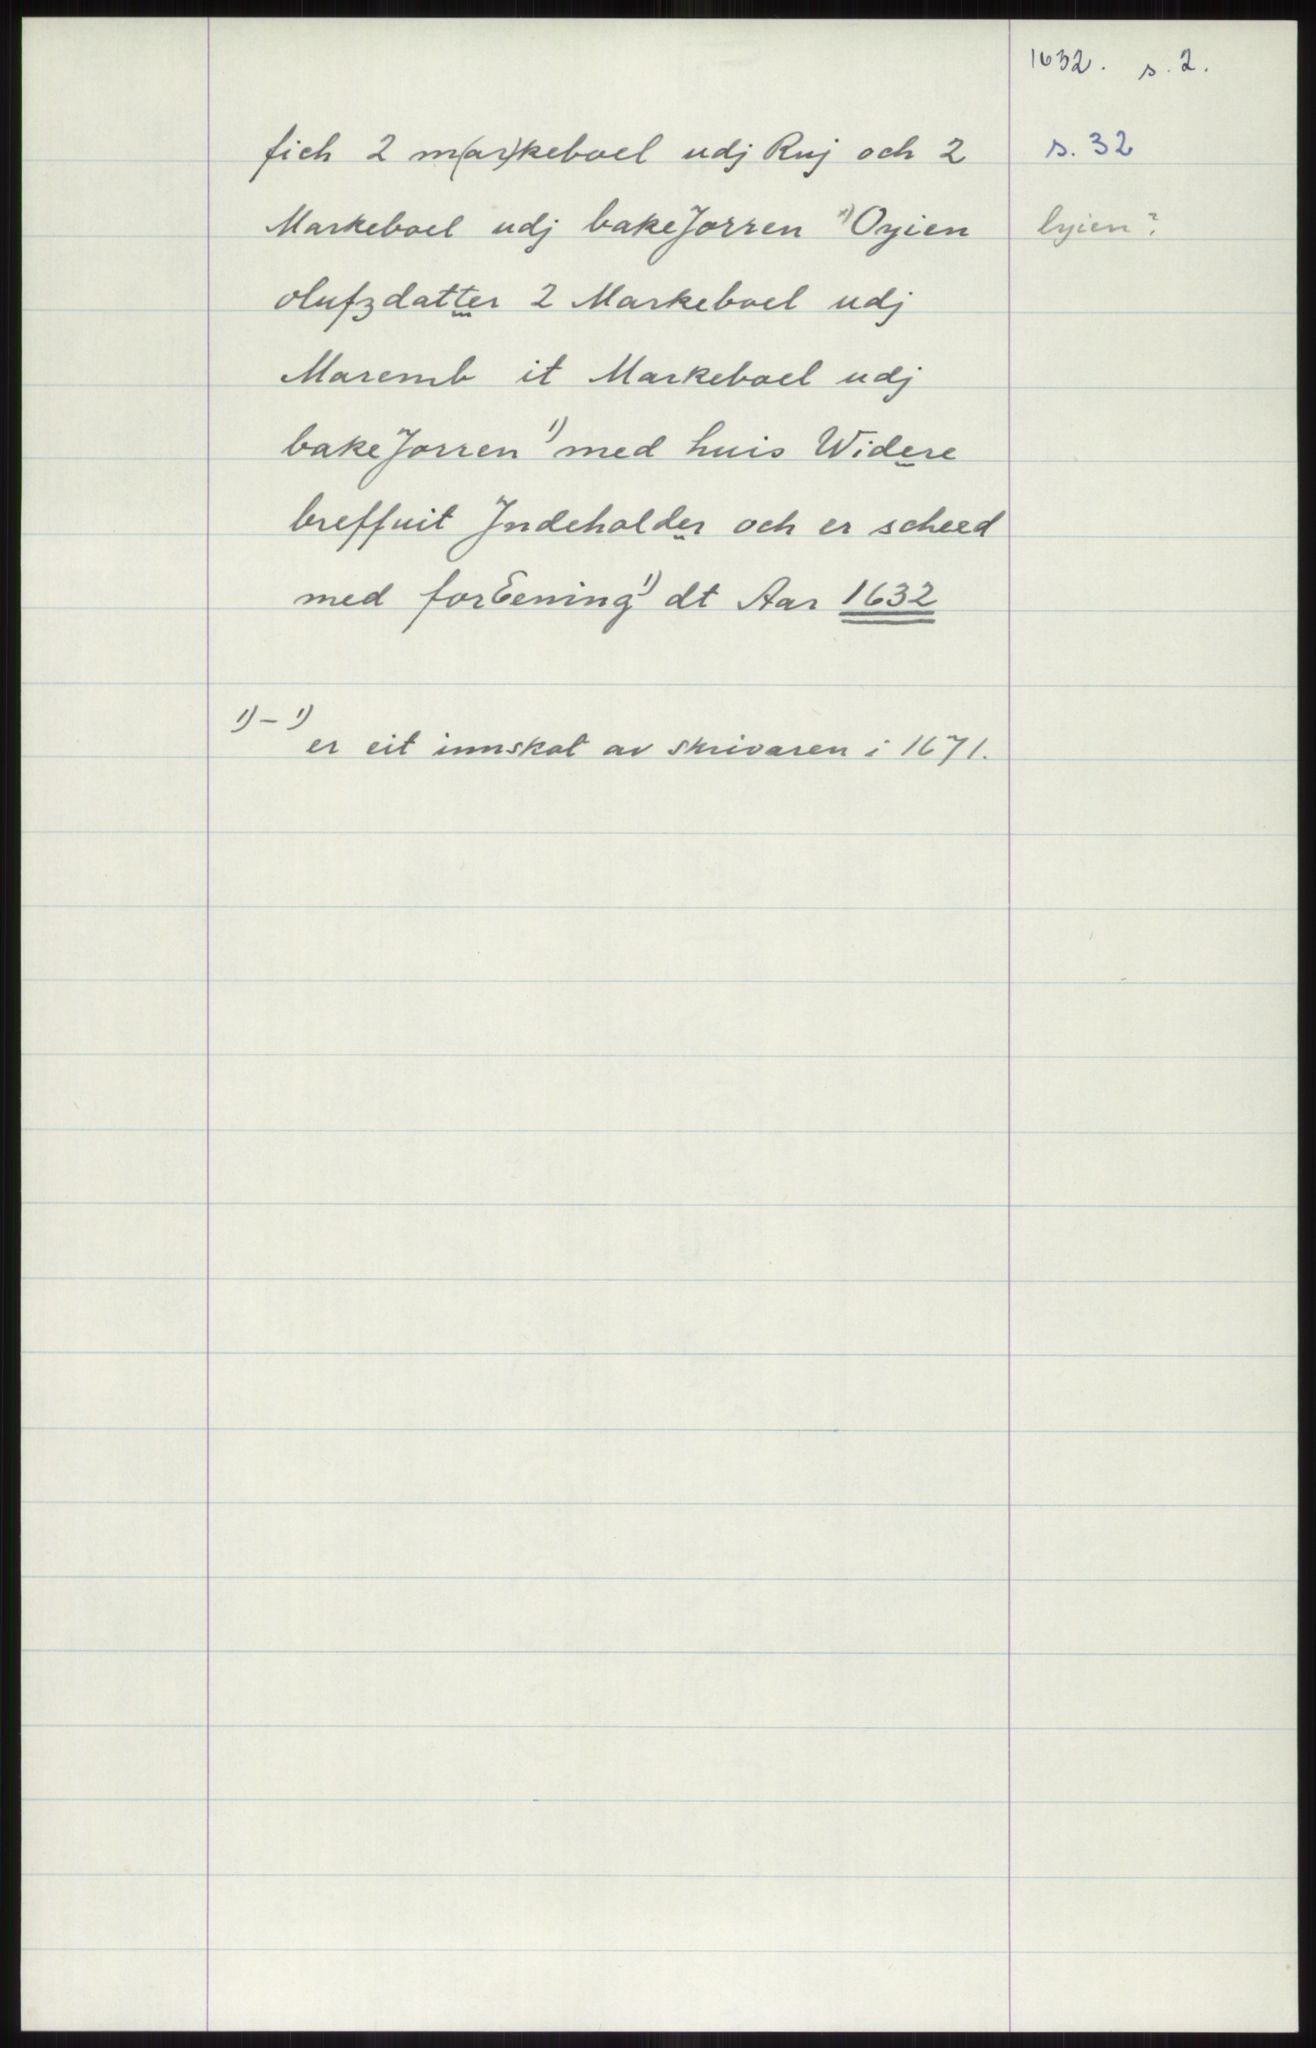 1632. s. 2.
fich 2 m(ar)keboel udj Ruj och 2
s. 32
Markeboel udj bakeJorren 1) Oyien
lyien?
olufzdatter 2 Markeboel udj
Maremb it Markeboel udj
bakeJorren 1) med huis Widere
breffuit Jndeholder och er scheed
med forEening 1) dt Aar 1632
1) – 1)
er eit innskot av skrivaren i 1671.